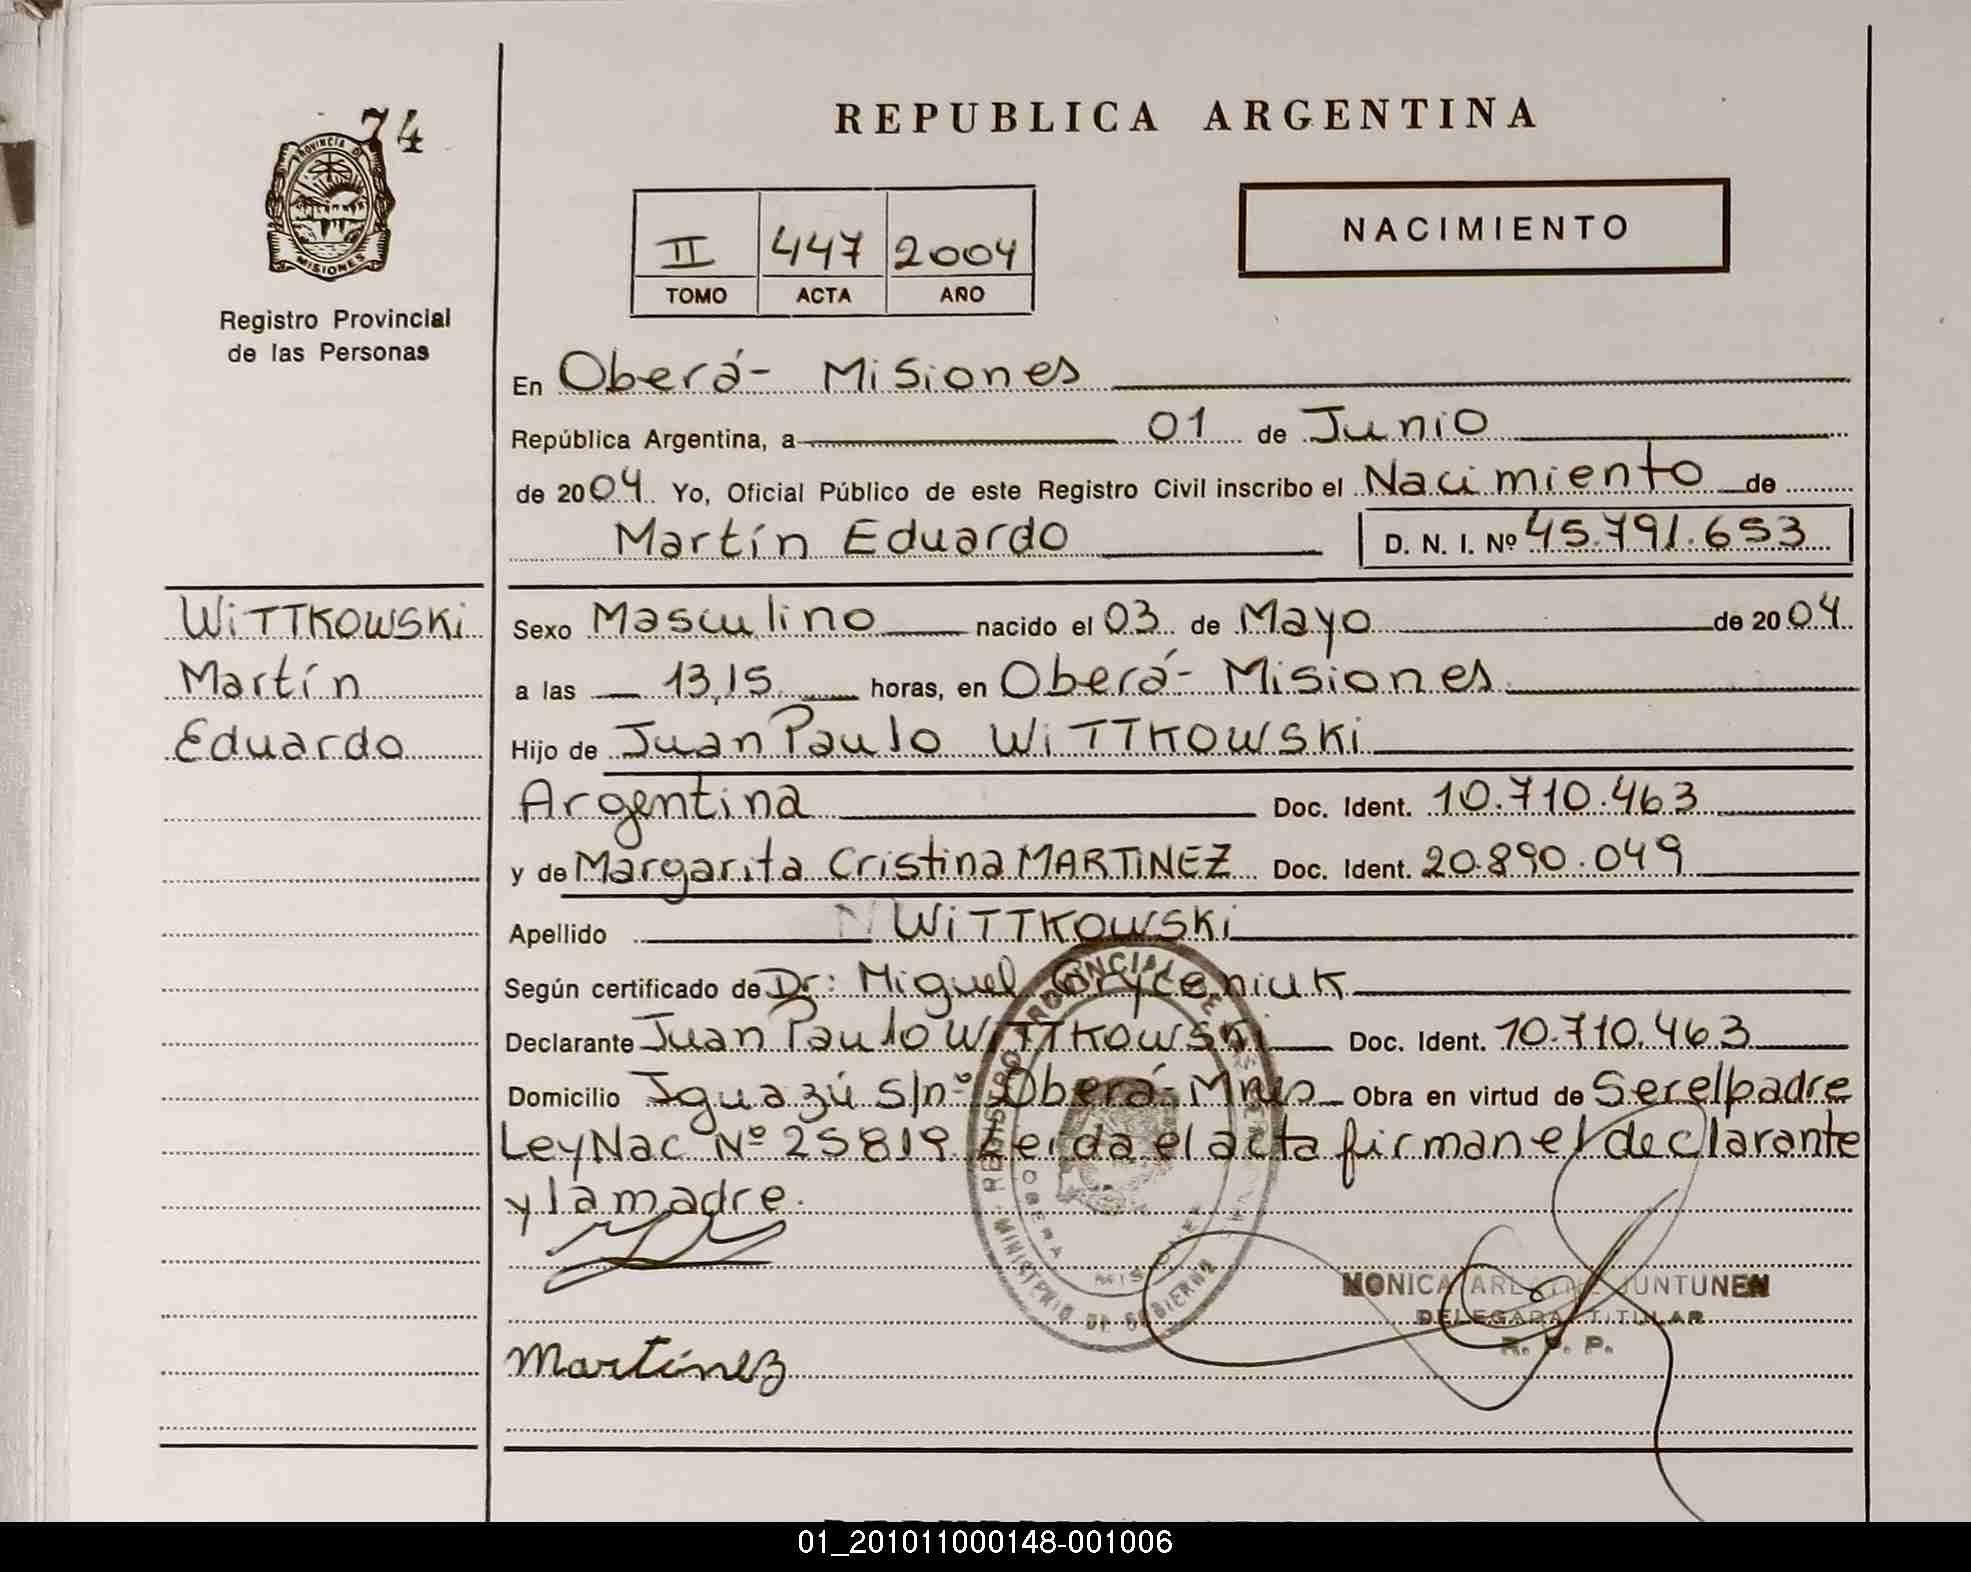 74
PROVINCIA DE
MISIONES
Registro Provincial
de las Personas
REPUBLICA ARGENTINA
NACIMIENTO
II 447 2004
TOMO ACTA AÑO
En Oberá- Misiones
República Argentina, a 01 de Junio
de 2004. Yo, Oficial Público de este Registro Civil inscribo el Nacimiento de
Martín Eduardo D. N. I. Nº 45.791.653
WITTKOWSKI
Martín
Eduardo
Sexo Masculino nacido el 03 de Mayo de 2004
a las 13,15 horas, en Oberá- Misiones
Hijo de Juan Paulo WITTKOWSKI
Argentina Doc. Ident. 10.710.463
y de Margarita Cristina MARTINEZ Doc. Ident. 20.890.049
Apellido WITTKOWSKI
Según certificado de Dr: Miguel Gryceniuk
Declarante Juan Paulo WITTKOWSKI Doc. Ident. 10.710.463
Domicilio Iguazú s/nº Oberá- Mnes Obra en virtud de Ser el padre
Ley Nac Nº 25819 Leida el acta firman el declarante
y la madre.
REGISTRO PROVINCIAL DE LAS PERSONAS
MINISTERIO DE GOBIERNO
OBERA MISIONES
MONICA ARLENE JUNTUNEN
DELEGADA TITULAR
R. P. P.
Martínez
01_201011000148-001006